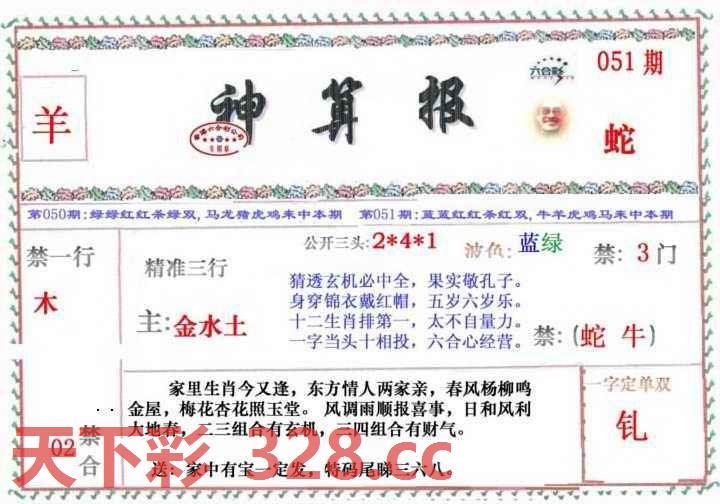 六合彩
051期
羊
神算报
香港六合彩公司
蛇
第050期:绿绿红红条绿双,马龙猪虎鸡来中本期 第051期:蓝蓝红红条红双,牛羊虎鸡马来中本期
禁一行
木
精准三行
主:金水土
公开三头:2*4*1 波色:蓝绿 禁:3门
猜透玄机必中全，果实敬孔子。
身穿锦衣戴红帽，五岁六岁乐。
十二生肖排第一，太不自量力。
一字当头十相投，六合心经营。
禁:(蛇 牛)
02
禁合
家里生肖今又逢，东方情人两家亲，春风杨柳鸣
金屋，梅花杏花照玉堂。风调雨顺报喜事，日和风利
大地春，二三组合有玄机，三四组合有财气。
送：家中有宝一定发，特码尾睇三六八。
一字定单双
钆
天下彩 328.cc